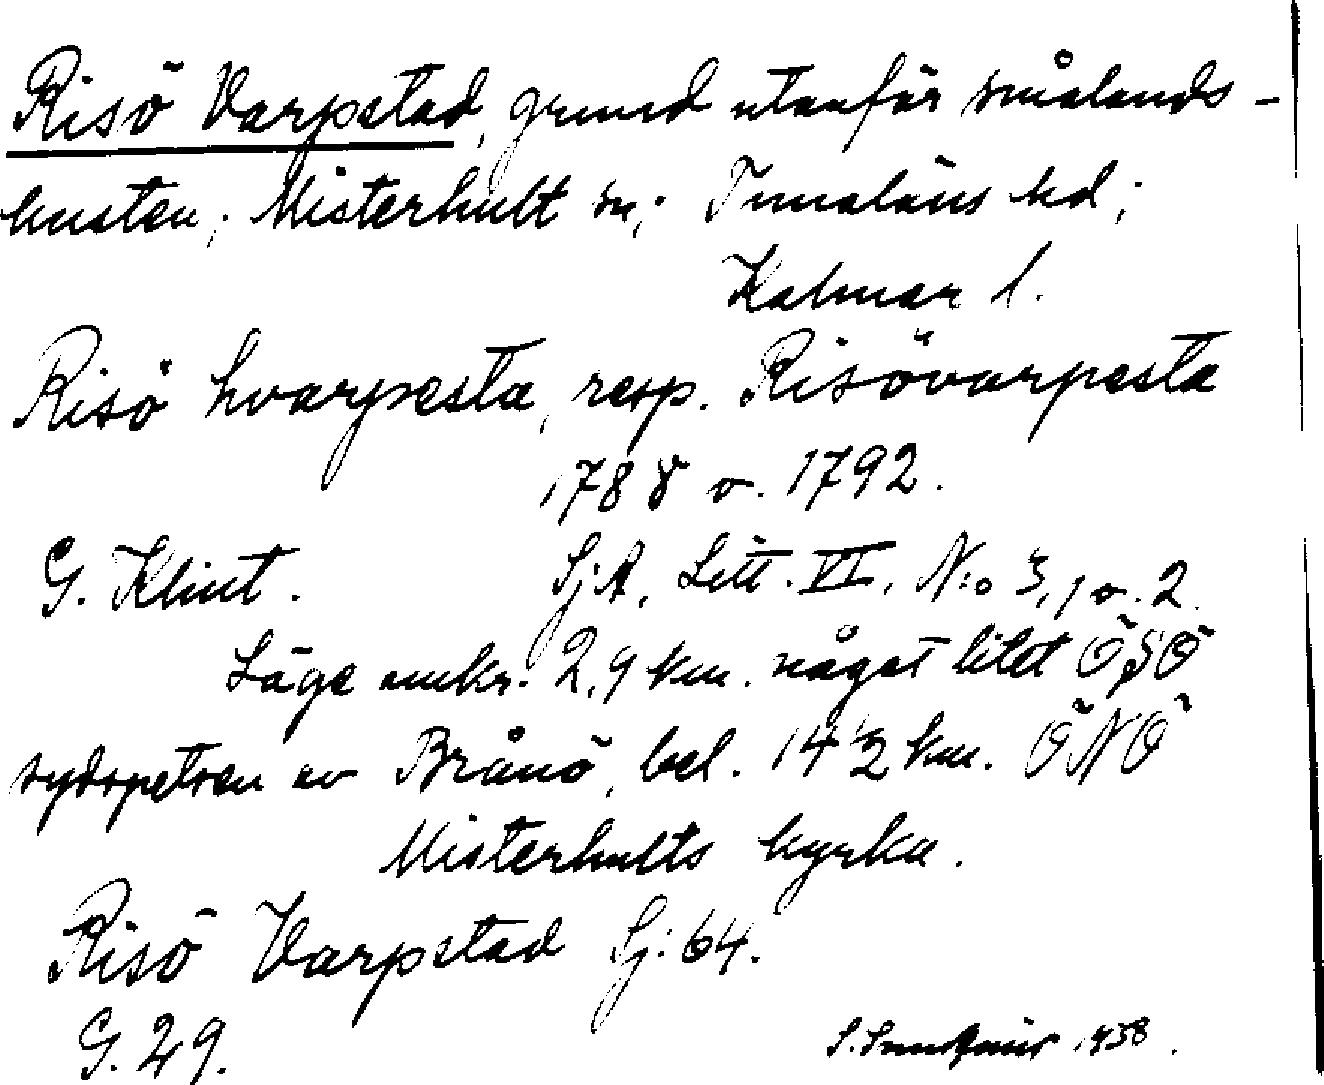 Risö Varpstad, grund utanför smålands-
kusten; Misterhult sn; Tunaläns hd;
Kalmar l.
Risö hvarpesta, resp. Risövarpesta
1788 o. 1792.
G. Klint. Sj.A. Litt. VI. N:o 3, 1 o. 2.
Läge omkr. 2,9 km. något litet ÖSÖ
sydspetsen av Brånö, bel. 14 1/2 km. ÖNÖ
Misterhults kyrka.
Risö Varpstad Sj: 64.
G. 29. S. 1938.